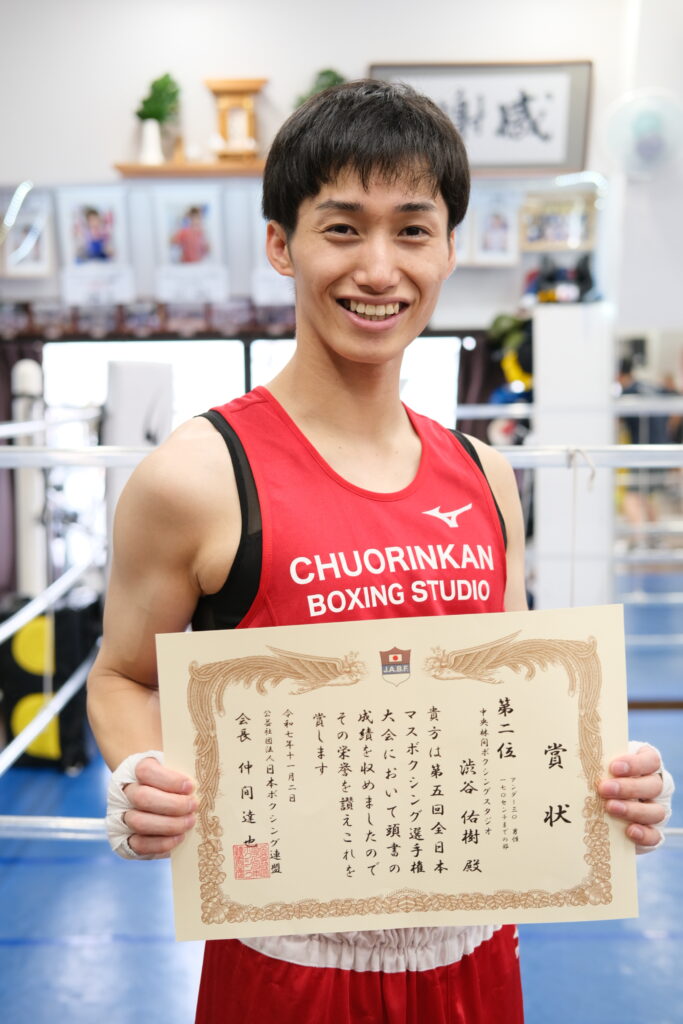 感謝
CHUORINKAN
BOXING STUDIO
J.A.B.F.
賞状
アンダー三〇 男性
一七〇センチまでの部
第二位
中央林間ボクシングスタジオ
渋谷 佑樹 殿
貴方は第五回全日本
マスボクシング選手権
大会において頭書の
成績を収めましたので
その栄誉を讃えこれを
賞します
令和七年十一月二日
公益社団法人日本ボクシング連盟
会長 仲間達也